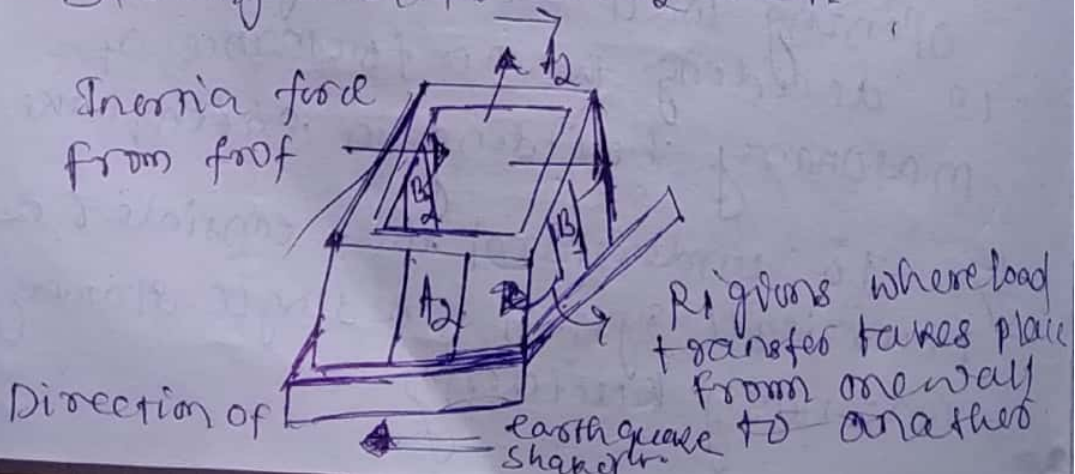 A2
Inernia force
from frof
B2
B1
A2
Rigions where load
transfer takes place
from one wall
to another
Direction of
earthquake
shaken.